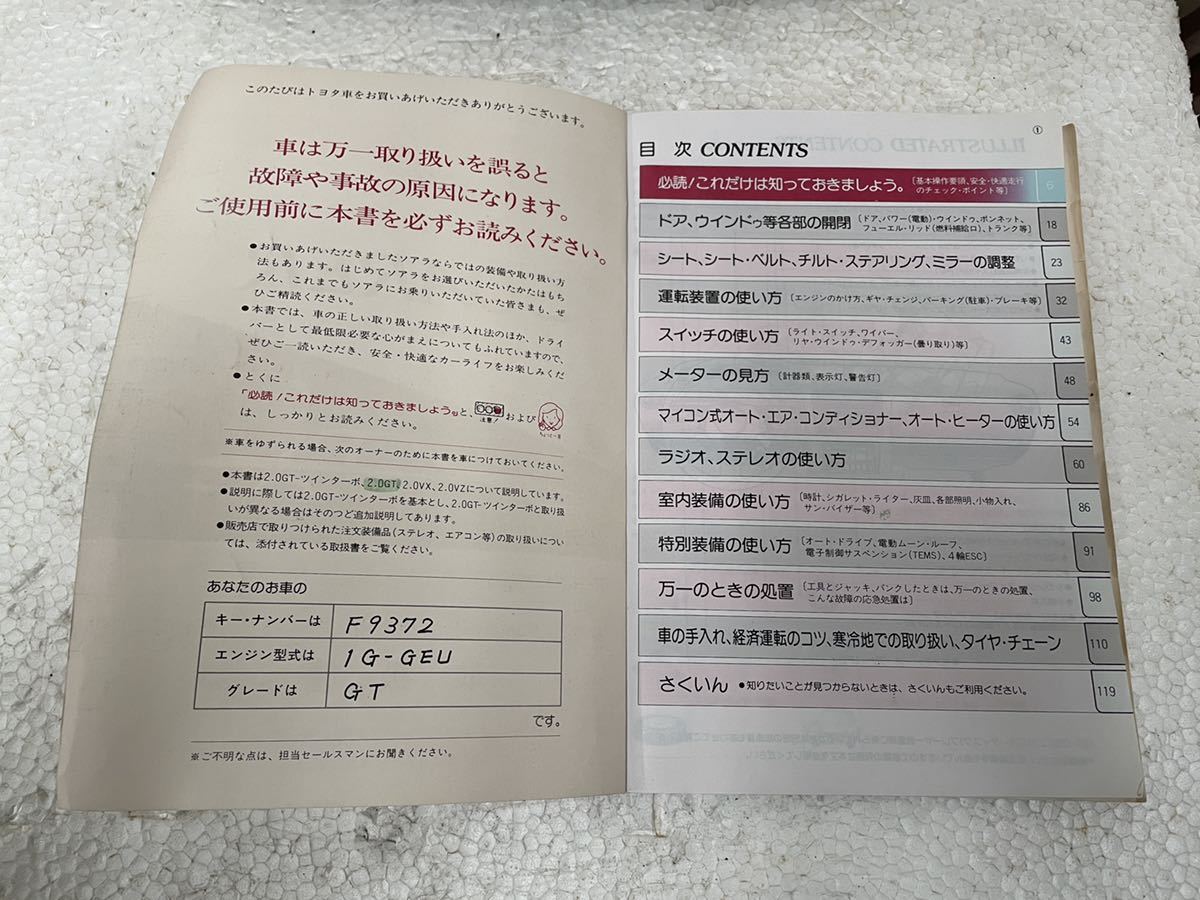 このたびはトヨタ車をお買いあげいただきありがとうございます。
車は万一取り扱いを誤ると
故障や事故の原因になります。
ご使用前に本書を必ずお読みください。
●お買いあげいただきましたソアラならではの装備や取り扱い方
法もあります。はじめてソアラをお選びいただいたかたはもち
ろん、これまでもソアラにお乗りいただいていた皆さまも、ぜ
ひご精読ください。
●本書では、車の正しい取り扱い方法や手入れ法のほか、ドライ
バーとして最低限必要な心がまえについてもふれていますので、
ぜひご一読いただき、安全・快適なカーライフをお楽しみくだ
さい。
●とくに
「必読!これだけは知っておきましょう。」と、注意!および ちょっと一言
は、しっかりとお読みください。
※車をゆずられる場合、次のオーナーのために本書を車につけておいてください。
●本書は2.0GT-ツインターボ、2.0GT、2.0VX、2.0VZについて説明しています。
●説明に際しては2.0GT-ツインターボを基本とし、2.0GT-ツインターボと取り扱
いが異なる場合はそのつど追加説明してあります。
●販売店で取りつけられた注文装備品(ステレオ、エアコン等)の取り扱いについ
ては、添付されている取扱書をご覧ください。
あなたのお車の
キー・ナンバーは F9372
エンジン型式は 1G-GEU
グレードは GT
です。
※ご不明な点は、担当セールスマンにお聞きください。
①
目 次 CONTENTS
必読!これだけは知っておきましょう。〔基本操作要領、安全・快適走行のチェック・ポイント等〕 6
ドア、ウインドゥ等各部の開閉〔ドア、パワー(電動)・ウインドゥ、ボンネット、フューエル・リッド(燃料補給口)、トランク等〕 18
シート、シート・ベルト、チルト・ステアリング、ミラーの調整 23
運転装置の使い方〔エンジンのかけ方、ギヤ・チェンジ、パーキング(駐車)・ブレーキ等〕 32
スイッチの使い方〔ライト・スイッチ、ワイパー、リヤ・ウインドゥ・デフォッガー(曇り取り)等〕 43
メーターの見方〔計器類、表示灯、警告灯〕 48
マイコン式オート・エア・コンディショナー、オート・ヒーターの使い方 54
ラジオ、ステレオの使い方 60
室内装備の使い方〔時計、シガレット・ライター、灰皿、各部照明、小物入れ、サン・バイザー等〕 86
特別装備の使い方〔オート・ドライブ、電動ムーン・ルーフ、電子制御サスペンション(TEMS)、4輪ESC〕 91
万一のときの処置〔工具とジャッキ、パンクしたときは、万一のときの処置、こんな故障の応急処置は〕 98
車の手入れ、経済運転のコツ、寒冷地での取り扱い、タイヤ・チェーン 110
さくいん ●知りたいことが見つからないときは、さくいんもご利用ください。 119